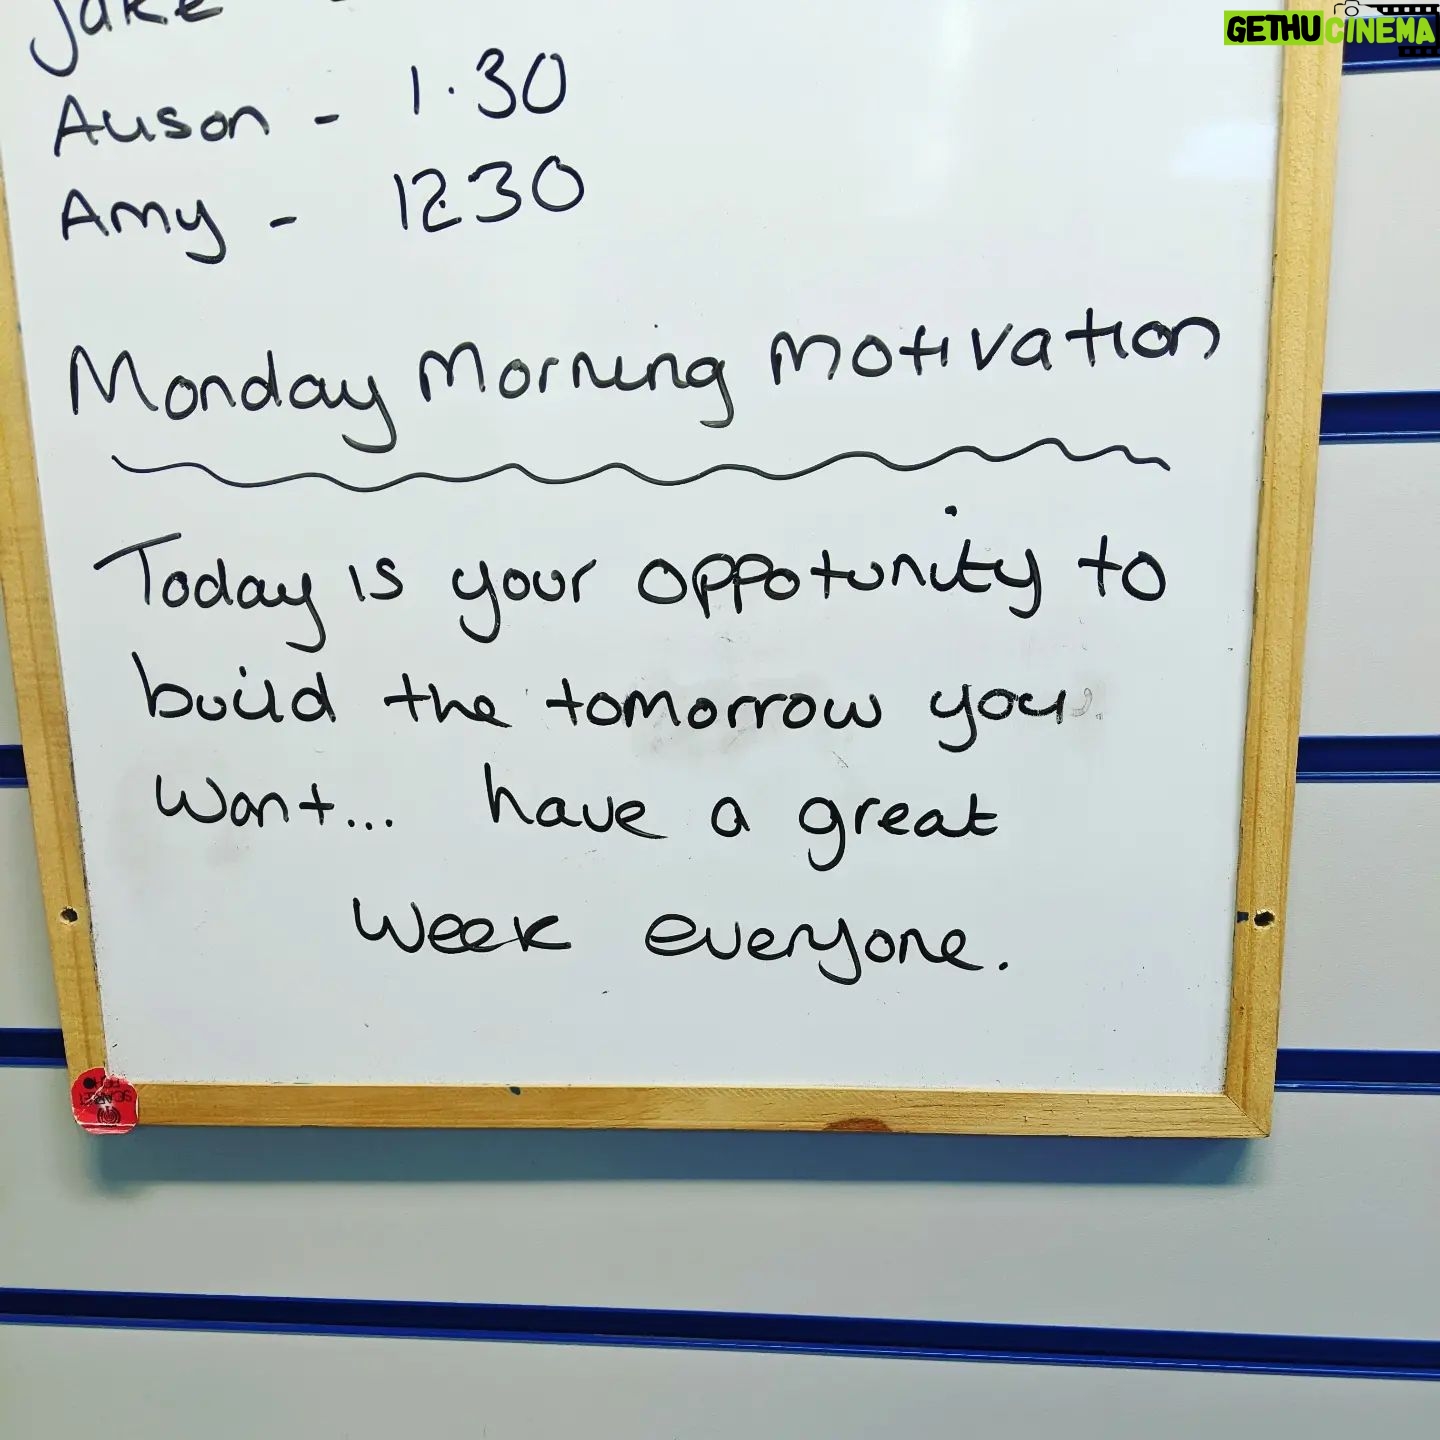 GETHUCINEMA
Jake -
Alison - 1.30
Amy - 12.30
Monday Morning Motivation
Today is your oppotunity to
build the tomorrow you
want... have a great
week everyone.
SCARLET